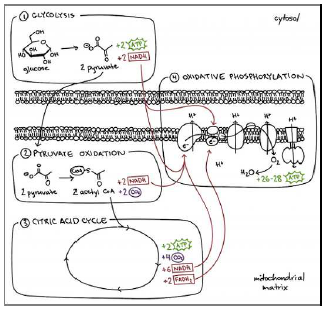 ① GLYCOLYSIS
cytosol
HO
OH
glucose
2 pyruvate
+2 ATP
+2 NADH
④ OXIDATIVE PHOSPHORYLATION
H⁺
H⁺
H⁺
H⁺
e⁻
e⁻
H⁺
O₂
H₂O
+26-28 ATP
② PYRUVATE OXIDATION
CoA
S
2 pyruvate
2 acetyl CoA
+2 NADH
+2 CO₂
③ CITRIC ACID CYCLE
+2 ATP
+4 CO₂
+6 NADH
+2 FADH₂
mitochondrial
matrix